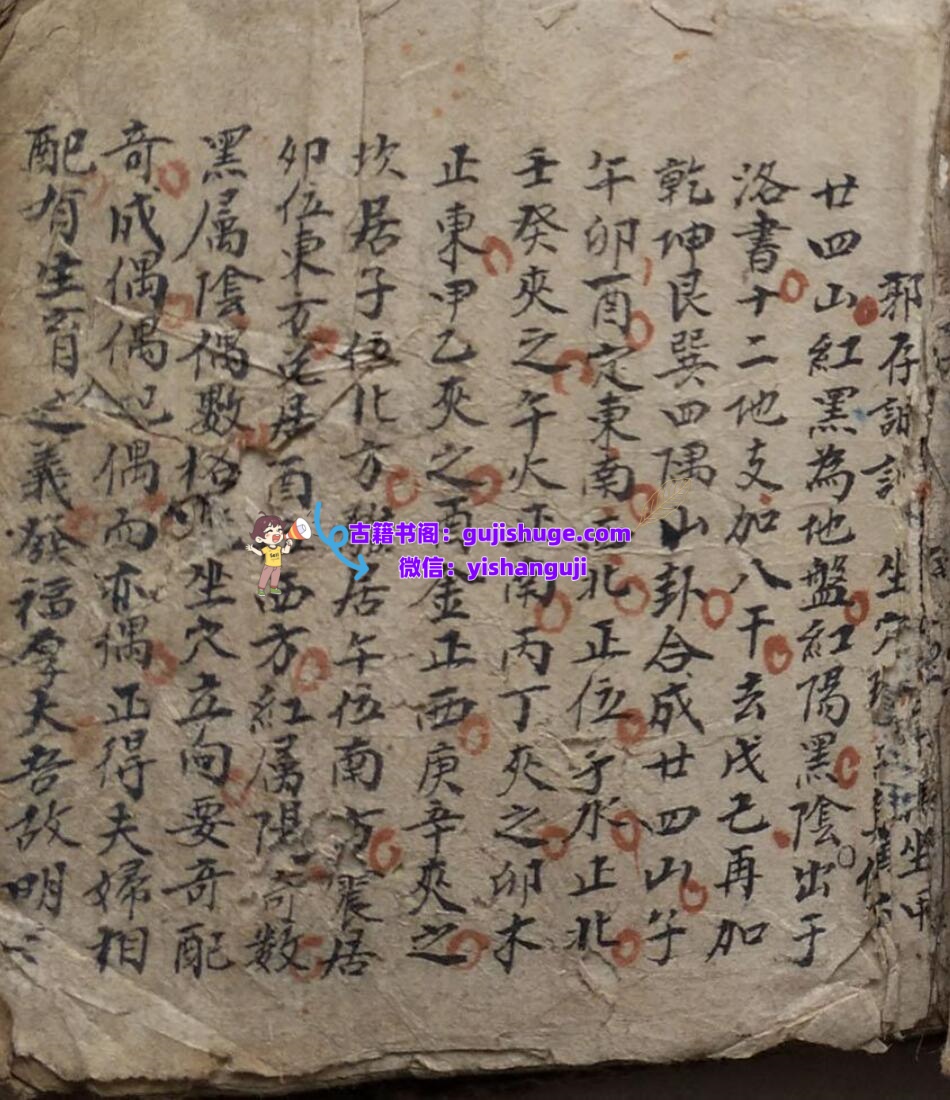 邪存 生穴 坐
廿四山紅黑為地盤紅陽黑陰出于
洛書十二地支加八干去戊己再加
乾坤艮巽四隅山卦合成廿四山子
午卯酉定東南西北正位子水正北
壬癸夾之午火正南丙丁夾之卯木
正東甲乙夾之酉金正西庚辛夾之
坎居子位北方離居午位南方震居
卯位東方兌居酉 西方紅屬陽奇数
黑屬陰偶數 坐穴立向要奇配
奇成偶偶配偶向亦偶正得夫婦相
配有生育之義發福厚大吾故明
古籍书阁：gujishuge.com
微信：yishanguji